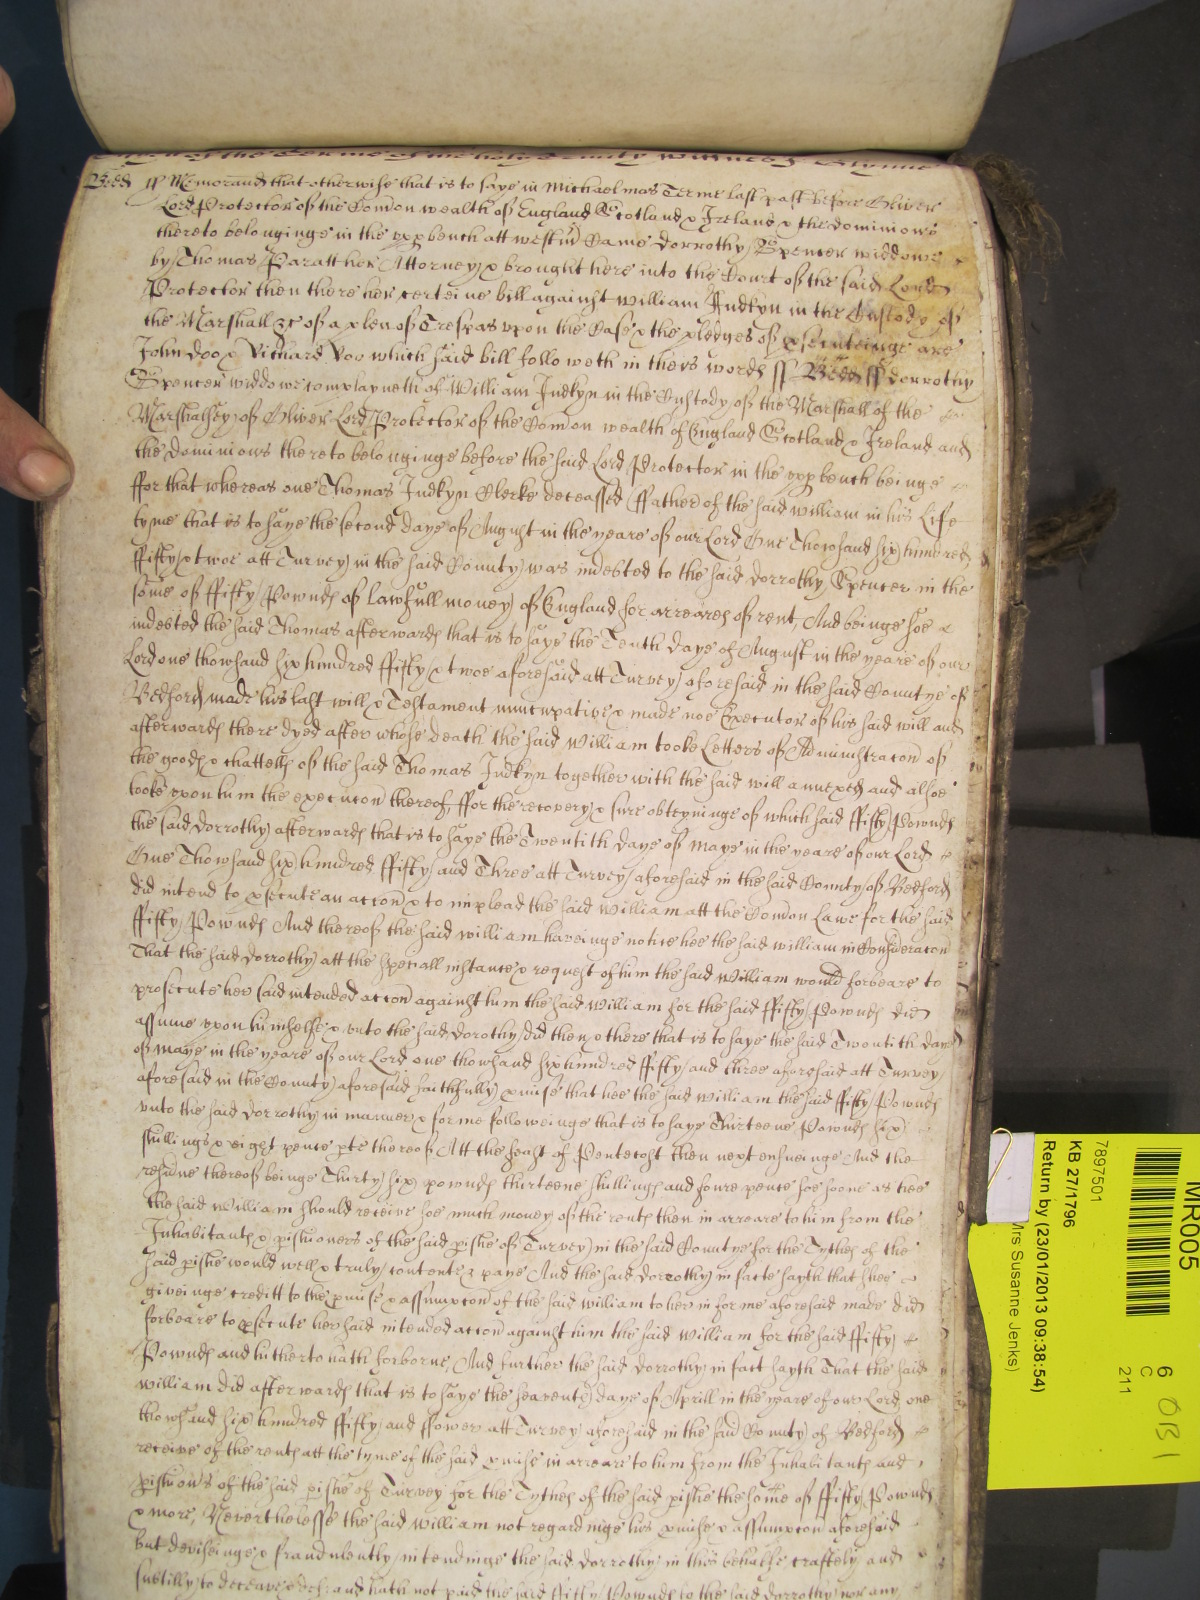 of the Terme of the holy Trinity Wittnes Glynne
Bedd ss Memorand that otherwise that is to saye in Michaelmas Terme last past before Oliver
Lord Protector of the Comon wealth of England Scotland & Ireland & the dominions
thereto belonginge in the upp bench att Westm Came dorrothy Spencer widdowe
by Thomas Paratt her Attorney & brought here into the Court of the said Lord
Protector then there her certeine bill against William Judkyn in the Custody of
the Marshall &c of a plea of Trespas upon the Case & the pledges of psecuteinge are
John doo & Richard Roo which said bill followeth in theis words ss Bedd ss dorrothy
Spencer widdowe complayneth of William Judkyn in the Custody of the Marshall of the
Marshalsey of Oliver Lord Protector of the Comon wealth of England Scotland & Ireland and
the dominions thereto belonginge before the said Lord Protector in the upp bench beinge
ffor that whereas one Thomas Judkyn Clerke deceassed ffather of the said William in his Life
tyme that is to saye the second daye of August in the yeare of our Lord One Thowsand six hundred
ffifty & twoe att Turvey in the said County was indebted to the said dorrothy Spencer in the
some of ffifty Pownds of lawfull money of England for arreares of rent, And beinge soe
indebted the said Thomas afterwards that is to saye the Tenth daye of August in the yeare of our
Lord one thowsand six hundred ffifty & twoe aforesaid att Turvey aforesaid in the said Countye of
Bedford made his last will & Testament nuncupative & made noe Executor of his said will and
afterwards there dyed after whose death the said William tooke Letters of Administracon of
the goods & chattells of the said Thomas Judkyn together with the said will annexed and alsoe
tooke upon him the execucon thereof, ffor the recovery & sure obteyninge of which said ffifty Pownds
the said dorrothy afterwards that is to saye the Twentith daye of Maye in the yeare of our Lord
One Thowsand six hundred ffifty and Three att Turvey aforesaid in the said County of Bedford
did intend to psecute an accon & to implead the said William att the Comon Lawe for the said
ffifty Pownds And thereof the said William haveinge notice hee the said William in Consideracon
That the said dorrothy att the speciall instance & request of him the said William would forbeare to
prosecute her said intended accon against him the said William for the said ffifty Pownds did
assume upon himselfe & unto the said dorothy did then & there that is to saye the said Twentith daye
of Maye in the yeare of our Lord one thowsand six hundred ffifty and three aforesaid att Turvey
aforesaid in the County aforesaid faithfully pmise that hee the said William the said ffifty Pownds
unto the said dorrothy in manner & forme followeinge that is to saye Thirteene Pownds six
shillings & eight pence pte thereof Att the feast of Pentecost then next ensueinge And the
residue thereof beinge Thirty six pownds thirteene shillings and foure pence soe soone as hee
the said William should receive soe much money of the rents then in arreare to him from the
Inhabitants & pishioners of the said pishe of Turvey in the said Countye for the Tythes of the
said pishe would well & truly contente & paye And the said dorrothy in facte sayth that shee
giveinge creditt to the pmise & assumpcon of the said William to her in forme aforesaid made did
forbeare to psecute her said intended accon against him the said William for the said ffifty
Pownds and hitherto hath forborne And further the said dorrothy in fact sayth That the said
William did afterwards that is to saye the seaventh daye of Aprill in the yeare of our Lord one
thowsand six hundred ffifty and ffower att Turvey aforesaid in the said County of Bedford
receive of the rents att the tyme of the said pmise in arreare to him from the Inhabitants and
pishion's of the said pishe of Turvey for the Tythes of the said pishe the some of ffifty Pownds
& more, Neverthelesse the said William not regardinge his pmise & assumpcon aforesaid
but deviseinge & fraudulently intendinge the said dorrothy in this behalfe craftely and
subtilly to deceave & defraud hath not paid the said ffifty Pownds to the said dorrothy nor any
MR005
7897501
KB 27/1796
Return by (23/01/2013 09:38:54)
Mrs Susanne Jenks)
6
C
211